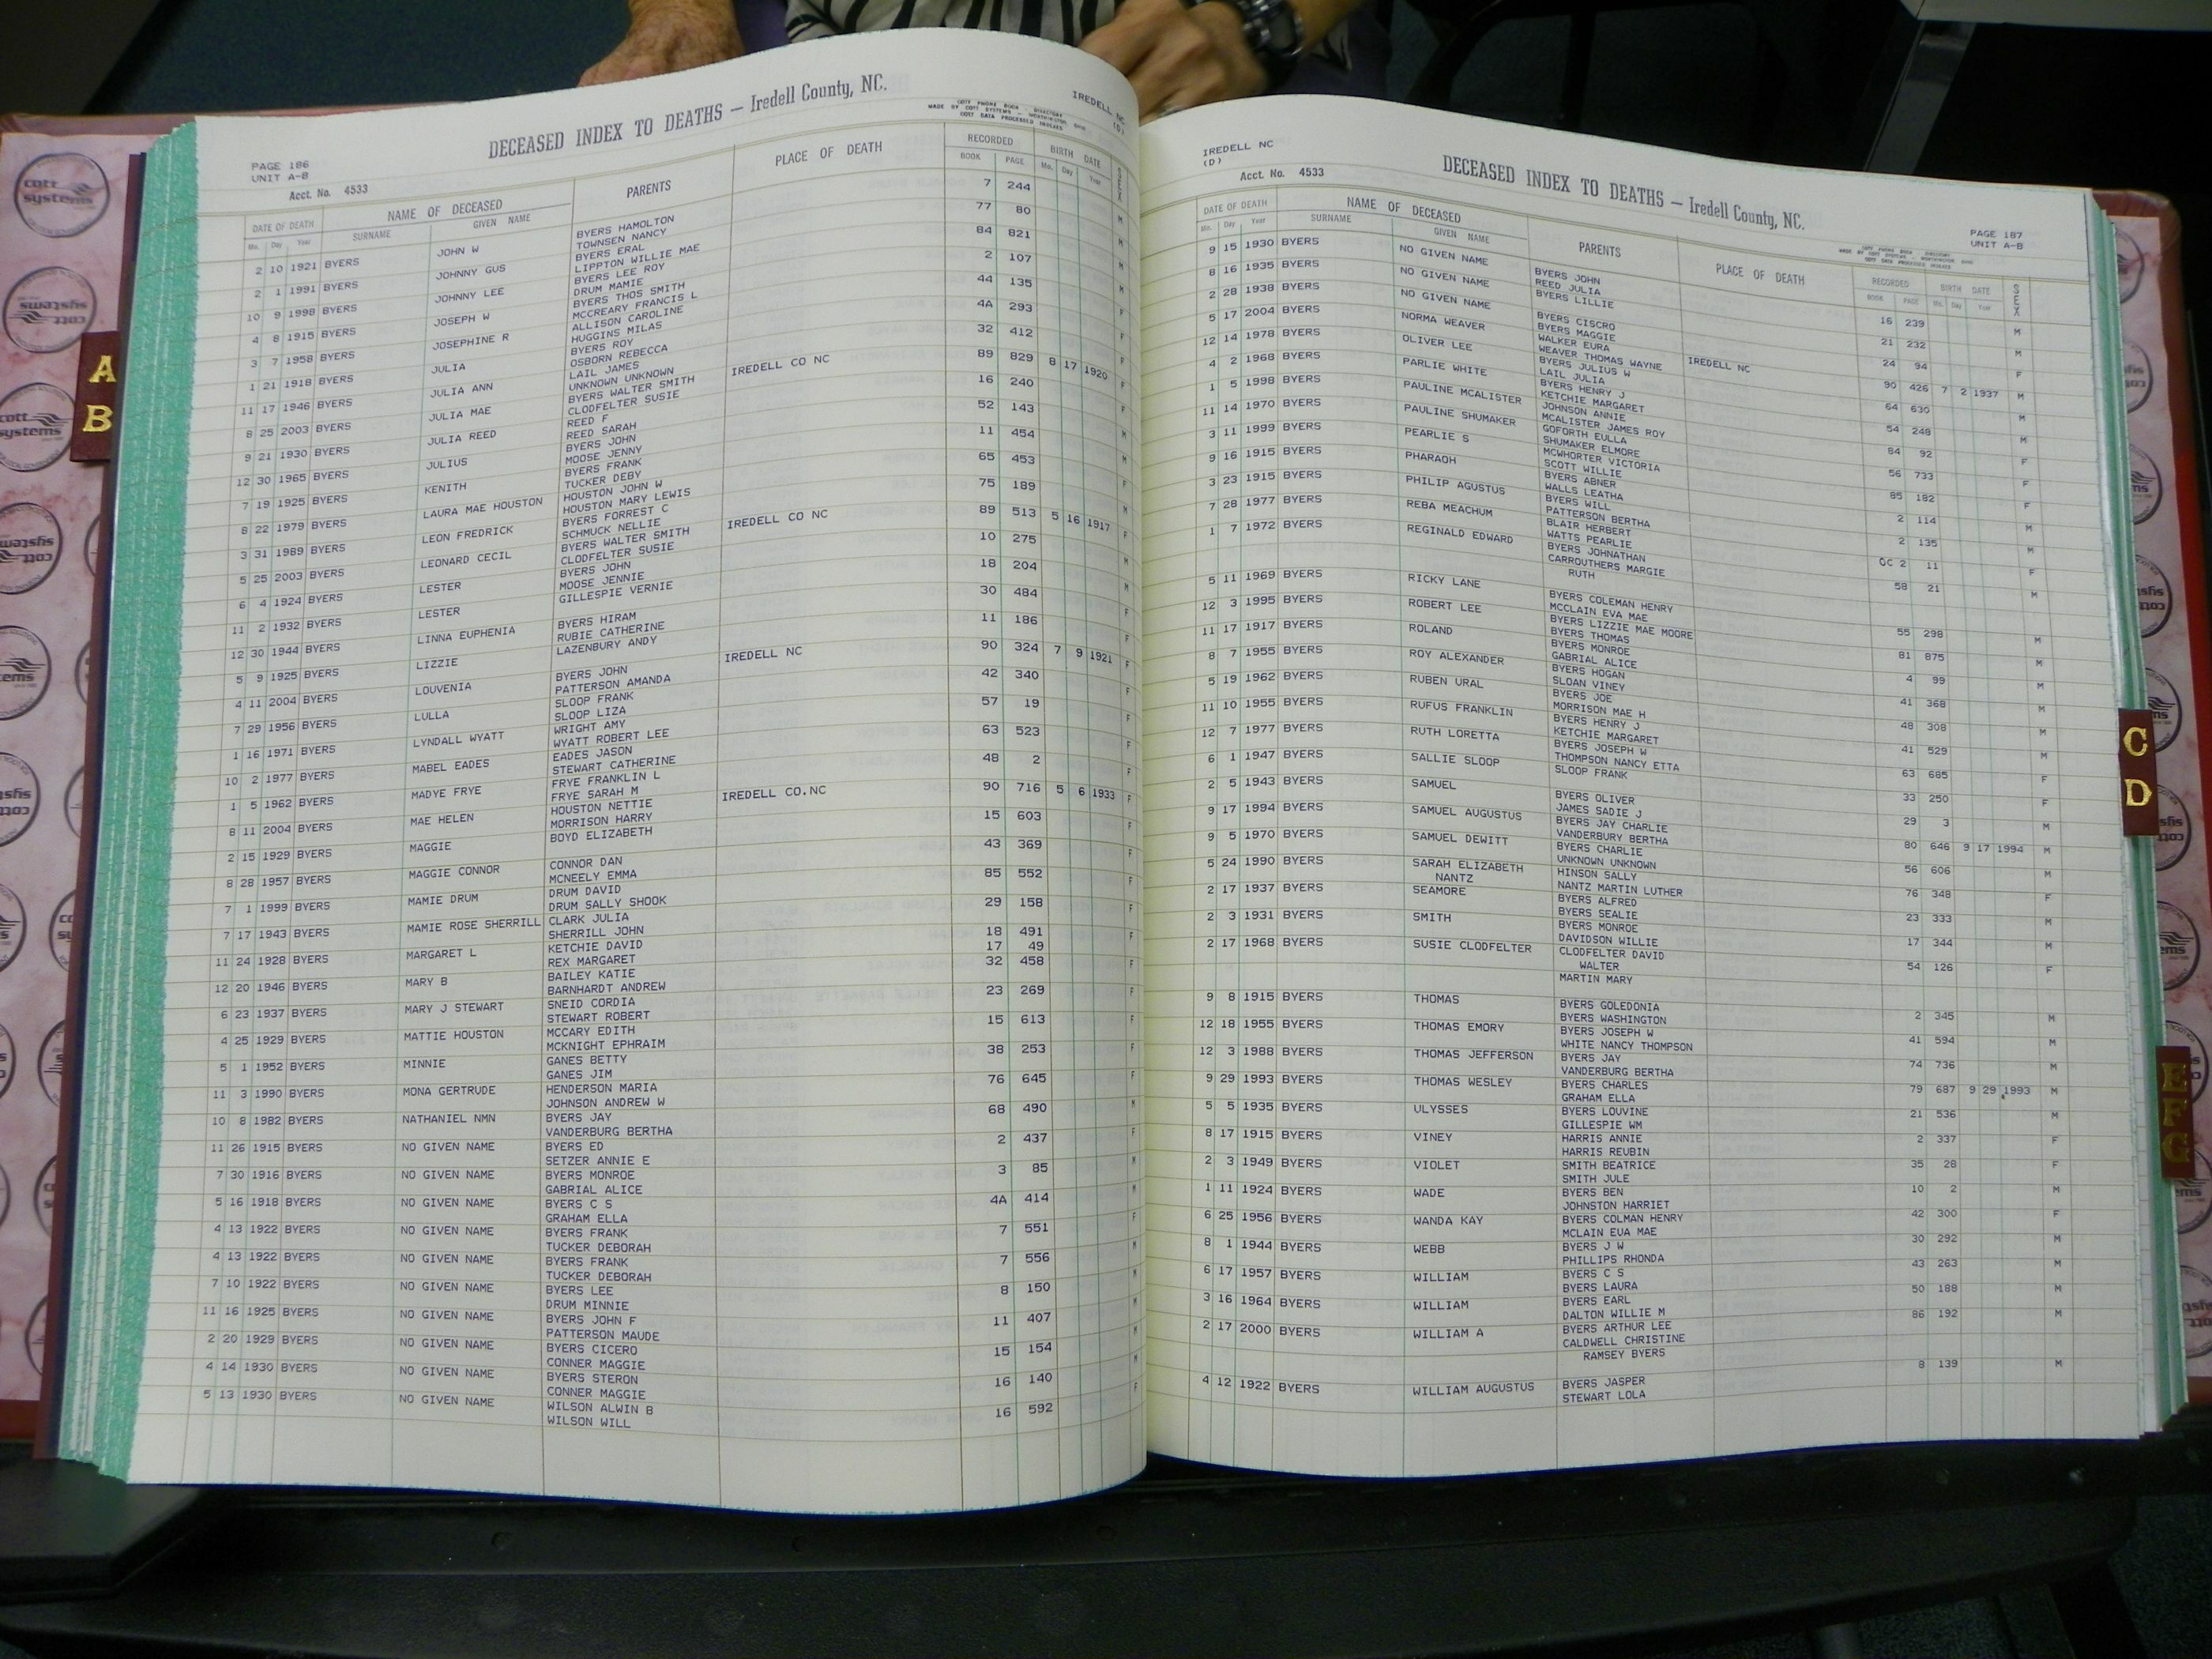 DECEASED INDEX TO DEATHS — Iredell County, NC.
IREDELL NC
(D)
PAGE 186
UNIT A-B
Acct. No. 4533
MADE BY COTT SYSTEMS - WORTHINGTON, OHIO
COTT DATA PROCESSED INDEXES
DATE OF DEATH NAME OF DECEASED PARENTS PLACE OF DEATH RECORDED BIRTH DATE SEX
Mo. Day Year SURNAME GIVEN NAME BOOK PAGE Mo. Day Year
2 10 1921 BYERS JOHN W BYERS HAMOLTON 7 244
TOWNSEN NANCY
2 1 1991 BYERS JOHNNY GUS BYERS ERAL 77 80
LIPPTON WILLIE MAE
10 9 1998 BYERS JOHNNY LEE BYERS LEE ROY 84 821
DRUM MAMIE
4 8 1915 BYERS JOSEPH W BYERS THOS SMITH 2 107
MCCREARY FRANCIS L
3 7 1958 BYERS JOSEPHINE R ALLISON CAROLINE 44 135
HUGGINS MILAS
1 21 1918 BYERS JULIA BYERS ROY 4A 293
OSBORN REBECCA
11 17 1946 BYERS JULIA ANN LAIL JAMES 32 412
UNKNOWN UNKNOWN
8 25 2003 BYERS JULIA MAE BYERS WALTER SMITH IREDELL CO NC 89 829 8 17 1920
CLODFELTER SUSIE
9 21 1930 BYERS JULIA REED REED F 16 240
REED SARAH
12 30 1965 BYERS JULIUS BYERS JOHN 52 143
MOOSE JENNY
7 19 1925 BYERS KENITH BYERS FRANK 11 454
TUCKER DEBY
8 22 1979 BYERS LAURA MAE HOUSTON HOUSTON JOHN W 65 453
HOUSTON MARY LEWIS
3 31 1989 BYERS LEON FREDRICK BYERS FORREST C 75 189
SCHMUCK NELLIE
5 25 2003 BYERS LEONARD CECIL BYERS WALTER SMITH IREDELL CO NC 89 513 5 16 1917
CLODFELTER SUSIE
6 4 1924 BYERS LESTER BYERS JOHN 10 275
MOOSE JENNIE
11 2 1932 BYERS LESTER GILLESPIE VERNIE 18 204
12 30 1944 BYERS LINNA EUPHENIA BYERS HIRAM 30 484
RUBIE CATHERINE
5 9 1925 BYERS LIZZIE LAZENBURY ANDY 11 186
4 11 2004 BYERS LOUVENIA BYERS JOHN IREDELL NC 90 324 7 9 1921
PATTERSON AMANDA
7 29 1956 BYERS LULLA SLOOP FRANK 42 340
SLOOP LIZA
1 16 1971 BYERS LYNDALL WYATT WRIGHT AMY 57 19
WYATT ROBERT LEE
10 2 1977 BYERS MABEL EADES EADES JASON 63 523
STEWART CATHERINE
1 5 1962 BYERS MADYE FRYE FRYE FRANKLIN L 48 2
FRYE SARAH M
8 11 2004 BYERS MAE HELEN HOUSTON NETTIE IREDELL CO.NC 90 716 5 6 1933
MORRISON HARRY
2 15 1929 BYERS MAGGIE BOYD ELIZABETH 15 603
8 28 1957 BYERS MAGGIE CONNOR CONNOR DAN 43 369
MCNEELY EMMA
7 1 1999 BYERS MAMIE DRUM DRUM DAVID 85 552
DRUM SALLY SHOOK
7 17 1943 BYERS MAMIE ROSE SHERRILL CLARK JULIA 29 158
SHERRILL JOHN
11 24 1928 BYERS MARGARET L KETCHIE DAVID 18 491
REX MARGARET 17 49
12 20 1946 BYERS MARY B BAILEY KATIE 32 458
BARNHARDT ANDREW
6 23 1937 BYERS MARY J STEWART SNEID CORDIA 23 269
STEWART ROBERT
4 25 1929 BYERS MATTIE HOUSTON MCCARY EDITH 15 613
MCKNIGHT EPHRAIM
5 1 1952 BYERS MINNIE GANES BETTY 38 253
GANES JIM
11 3 1990 BYERS MONA GERTRUDE HENDERSON MARIA 76 645
JOHNSON ANDREW W
10 8 1982 BYERS NATHANIEL NMN BYERS JAY 68 490
VANDERBURG BERTHA
11 26 1915 BYERS NO GIVEN NAME BYERS ED 2 437
SETZER ANNIE E
7 30 1916 BYERS NO GIVEN NAME BYERS MONROE 3 85
GABRIAL ALICE
5 16 1918 BYERS NO GIVEN NAME BYERS C S 4A 414
GRAHAM ELLA
4 13 1922 BYERS NO GIVEN NAME BYERS FRANK 7 551
TUCKER DEBORAH
4 13 1922 BYERS NO GIVEN NAME BYERS FRANK 7 556
TUCKER DEBORAH
7 10 1922 BYERS NO GIVEN NAME BYERS LEE 8 150
DRUM MINNIE
11 16 1925 BYERS NO GIVEN NAME BYERS JOHN F 11 407
PATTERSON MAUDE
2 20 1929 BYERS NO GIVEN NAME BYERS CICERO 15 154
CONNER MAGGIE
4 14 1930 BYERS NO GIVEN NAME BYERS STERON 16 140
CONNER MAGGIE
5 13 1930 BYERS NO GIVEN NAME WILSON ALWIN B 16 592
WILSON WILL
IREDELL NC
(D)
Acct. No. 4533
DECEASED INDEX TO DEATHS — Iredell County, NC.
PAGE 187
UNIT A-B
DATE OF DEATH NAME OF DECEASED PARENTS PLACE OF DEATH RECORDED BIRTH DATE SEX
Mo. Day Year SURNAME GIVEN NAME BOOK PAGE Mo. Day Year
9 15 1930 BYERS NO GIVEN NAME BYERS JOHN 16 239 M
REED JULIA
8 16 1935 BYERS NO GIVEN NAME BYERS LILLIE 21 232 M
2 28 1938 BYERS NO GIVEN NAME BYERS CISCRO 24 94 F
BYERS MAGGIE
5 17 2004 BYERS NORMA WEAVER WALKER EURA IREDELL NC 90 426 7 2 1937
WEAVER THOMAS WAYNE
12 14 1978 BYERS OLIVER LEE BYERS JULIUS W 64 630 M
LAIL JULIA
4 2 1968 BYERS PARLIE WHITE BYERS HENRY J 54 248 M
KETCHIE MARGARET
1 5 1998 BYERS PAULINE MCALISTER JOHNSON ANNIE 84 92 F
MCALISTER JAMES ROY
11 14 1970 BYERS PAULINE SHUMAKER GOFORTH EULLA 56 733 F
SHUMAKER ELMORE
3 11 1999 BYERS PEARLIE S MCWHORTER VICTORIA 85 182 F
SCOTT WILLIE
9 16 1915 BYERS PHARAOH BYERS ABNER 2 114 M
WALLS LEATHA
3 23 1915 BYERS PHILIP AGUSTUS BYERS WILL 2 135 M
PATTERSON BERTHA
7 28 1977 BYERS REBA MEACHUM BLAIR HERBERT OC 2 11 F
WATTS PEARLIE
1 7 1972 BYERS REGINALD EDWARD BYERS JOHNATHAN 58 21 M
CARROUTHERS MARGIE
RUTH
5 11 1969 BYERS RICKY LANE BYERS COLEMAN HENRY 55 298 M
MCCLAIN EVA MAE
12 3 1995 BYERS ROBERT LEE BYERS LIZZIE MAE MOORE 81 875 M
BYERS THOMAS
11 17 1917 BYERS ROLAND BYERS MONROE 4 99 M
GABRIAL ALICE
8 7 1955 BYERS ROY ALEXANDER BYERS HOGAN 41 368 M
SLOAN VINEY
5 19 1962 BYERS RUBEN URAL BYERS JOE 48 308 M
MORRISON MAE H
11 10 1955 BYERS RUFUS FRANKLIN BYERS HENRY J 41 529 M
KETCHIE MARGARET
12 7 1977 BYERS RUTH LORETTA BYERS JOSEPH W 63 685 F
THOMPSON NANCY ETTA
6 1 1947 BYERS SALLIE SLOOP SLOOP FRANK 33 250 F
2 5 1943 BYERS SAMUEL BYERS OLIVER 29 3 M
JAMES SADIE J
9 17 1994 BYERS SAMUEL AUGUSTUS BYERS JAY CHARLIE 80 646 9 17 1994 M
VANDERBURY BERTHA
9 5 1970 BYERS SAMUEL DEWITT BYERS CHARLIE 56 606 M
UNKNOWN UNKNOWN
5 24 1990 BYERS SARAH ELIZABETH HINSON SALLY 76 348 F
NANTZ NANTZ MARTIN LUTHER
2 17 1937 BYERS SEAMORE BYERS ALFRED 23 333 M
BYERS SEALIE
2 3 1931 BYERS SMITH BYERS MONROE 17 344 M
DAVIDSON WILLIE
2 17 1968 BYERS SUSIE CLODFELTER CLODFELTER DAVID 54 126 F
WALTER
MARTIN MARY
9 8 1915 BYERS THOMAS BYERS GOLEDONIA 2 345 M
BYERS WASHINGTON
12 18 1955 BYERS THOMAS EMORY BYERS JOSEPH W 41 594 M
WHITE NANCY THOMPSON
12 3 1988 BYERS THOMAS JEFFERSON BYERS JAY 74 736 M
VANDERBURG BERTHA
9 29 1993 BYERS THOMAS WESLEY BYERS CHARLES 79 687 9 29 1993 M
GRAHAM ELLA
5 5 1935 BYERS ULYSSES BYERS LOUVINE 21 536 M
GILLESPIE WM
8 17 1915 BYERS VINEY HARRIS ANNIE 2 337 F
HARRIS REUBIN
2 3 1949 BYERS VIOLET SMITH BEATRICE 35 28 F
SMITH JULE
1 11 1924 BYERS WADE BYERS BEN 10 2 M
JOHNSTON HARRIET
6 25 1956 BYERS WANDA KAY BYERS COLMAN HENRY 42 300 F
MCLAIN EUA MAE
8 1 1944 BYERS WEBB BYERS J W 30 292 M
PHILLIPS RHONDA
6 17 1957 BYERS WILLIAM BYERS C S 43 263 M
BYERS LAURA
3 16 1964 BYERS WILLIAM BYERS EARL 50 188 M
DALTON WILLIE M
2 17 2000 BYERS WILLIAM A BYERS ARTHUR LEE 86 192 M
CALDWELL CHRISTINE
RAMSEY BYERS
4 12 1922 BYERS WILLIAM AUGUSTUS BYERS JASPER 8 139 M
STEWART LOLA
A
B
C
D
E
F
G
cott
systems